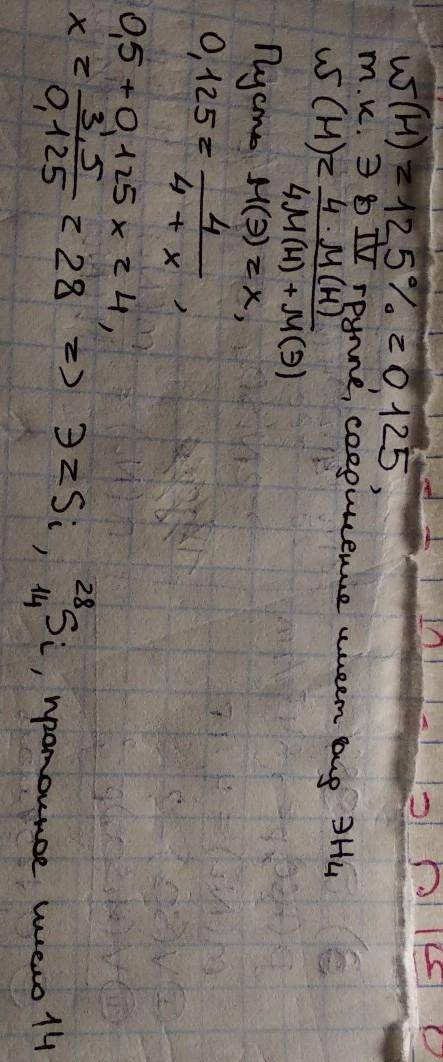 ω(H) = 12,5% = 0,125,
т.к. Э в IV группе, соединение имеет вид ЭH₄
ω(H) = 4·M(H) / 4M(H) + M(Э)
Пусть M(Э) = x,
0,125 = 4 / 4 + x ,
0,5 + 0,125 x = 4,
x = 3,5 / 0,125 = 28 => Э = Si, ²⁸₁₄Si, протонное число 14